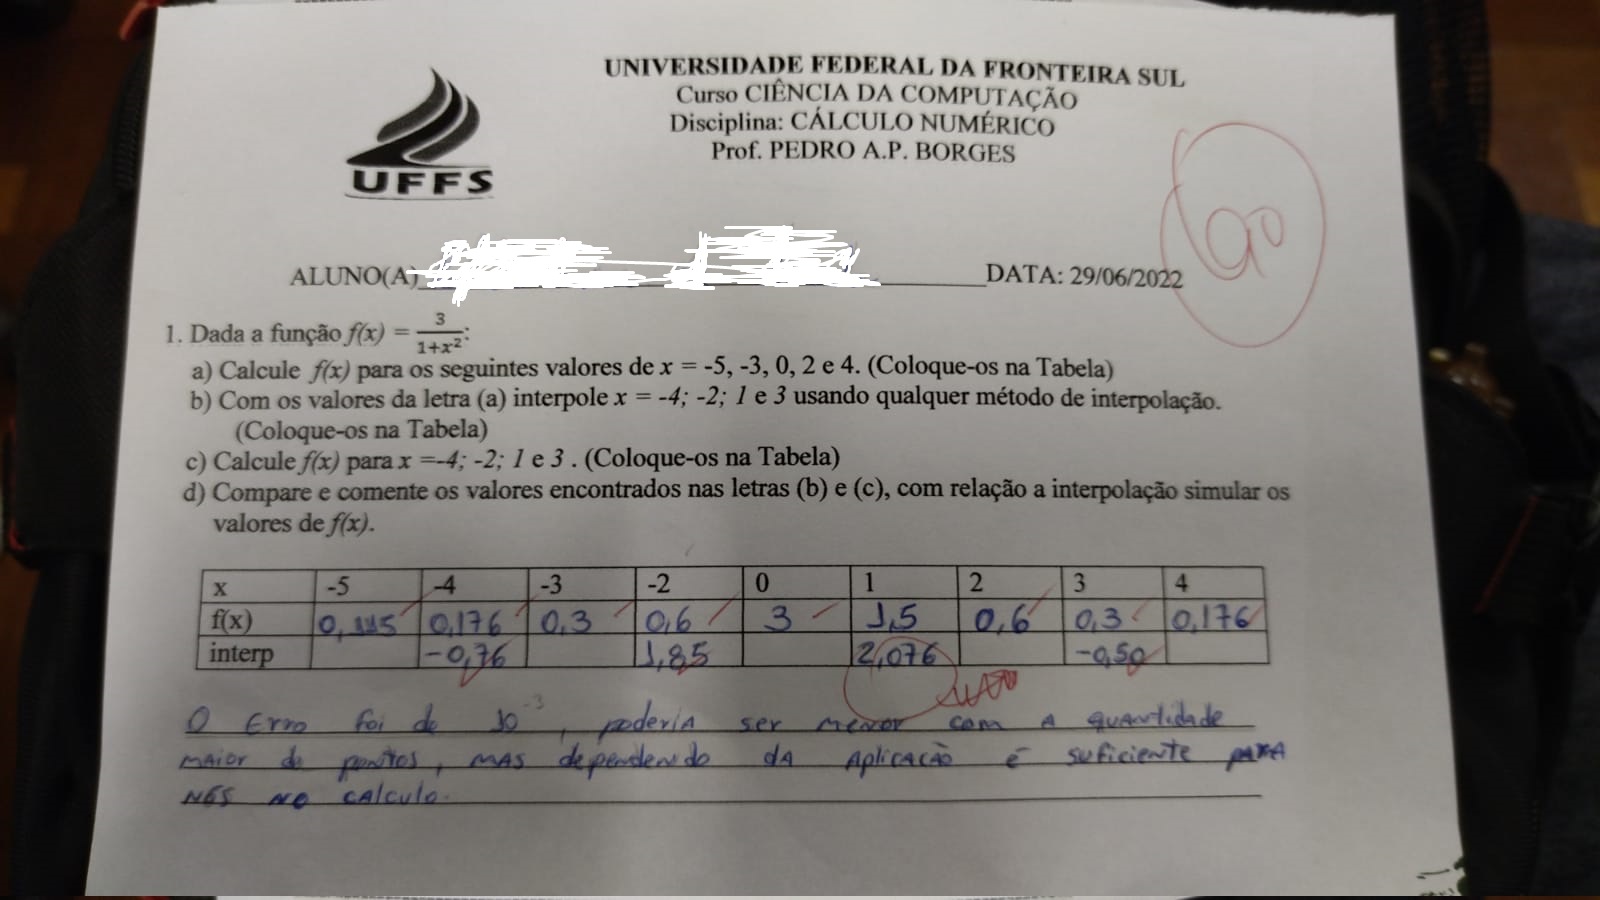 UNIVERSIDADE FEDERAL DA FRONTEIRA SUL
Curso CIÊNCIA DA COMPUTAÇÃO
Disciplina: CÁLCULO NUMÉRICO
Prof. PEDRO A.P. BORGES
UFFS
ALUNO(A) DATA: 29/06/2022
1. Dada a função f(x) = 3/(1+x²):
a) Calcule f(x) para os seguintes valores de x = -5, -3, 0, 2 e 4. (Coloque-os na Tabela)
b) Com os valores da letra (a) interpole x = -4; -2; 1 e 3 usando qualquer método de interpolação.
(Coloque-os na Tabela)
c) Calcule f(x) para x =-4; -2; 1 e 3 . (Coloque-os na Tabela)
d) Compare e comente os valores encontrados nas letras (b) e (c), com relação a interpolação simular os
valores de f(x).
x -5 -4 -3 -2 0 1 2 3 4
f(x) 0,115 0,176 0,3 0,6 3 1,5 0,6 0,3 0,176
interp -0,76 1,85 2,076 -0,50
O Erro foi de 10⁻³, poderia ser menor com a quantidade
maior de pontos, mas dependendo da aplicação é suficiente para
nós no calculo.